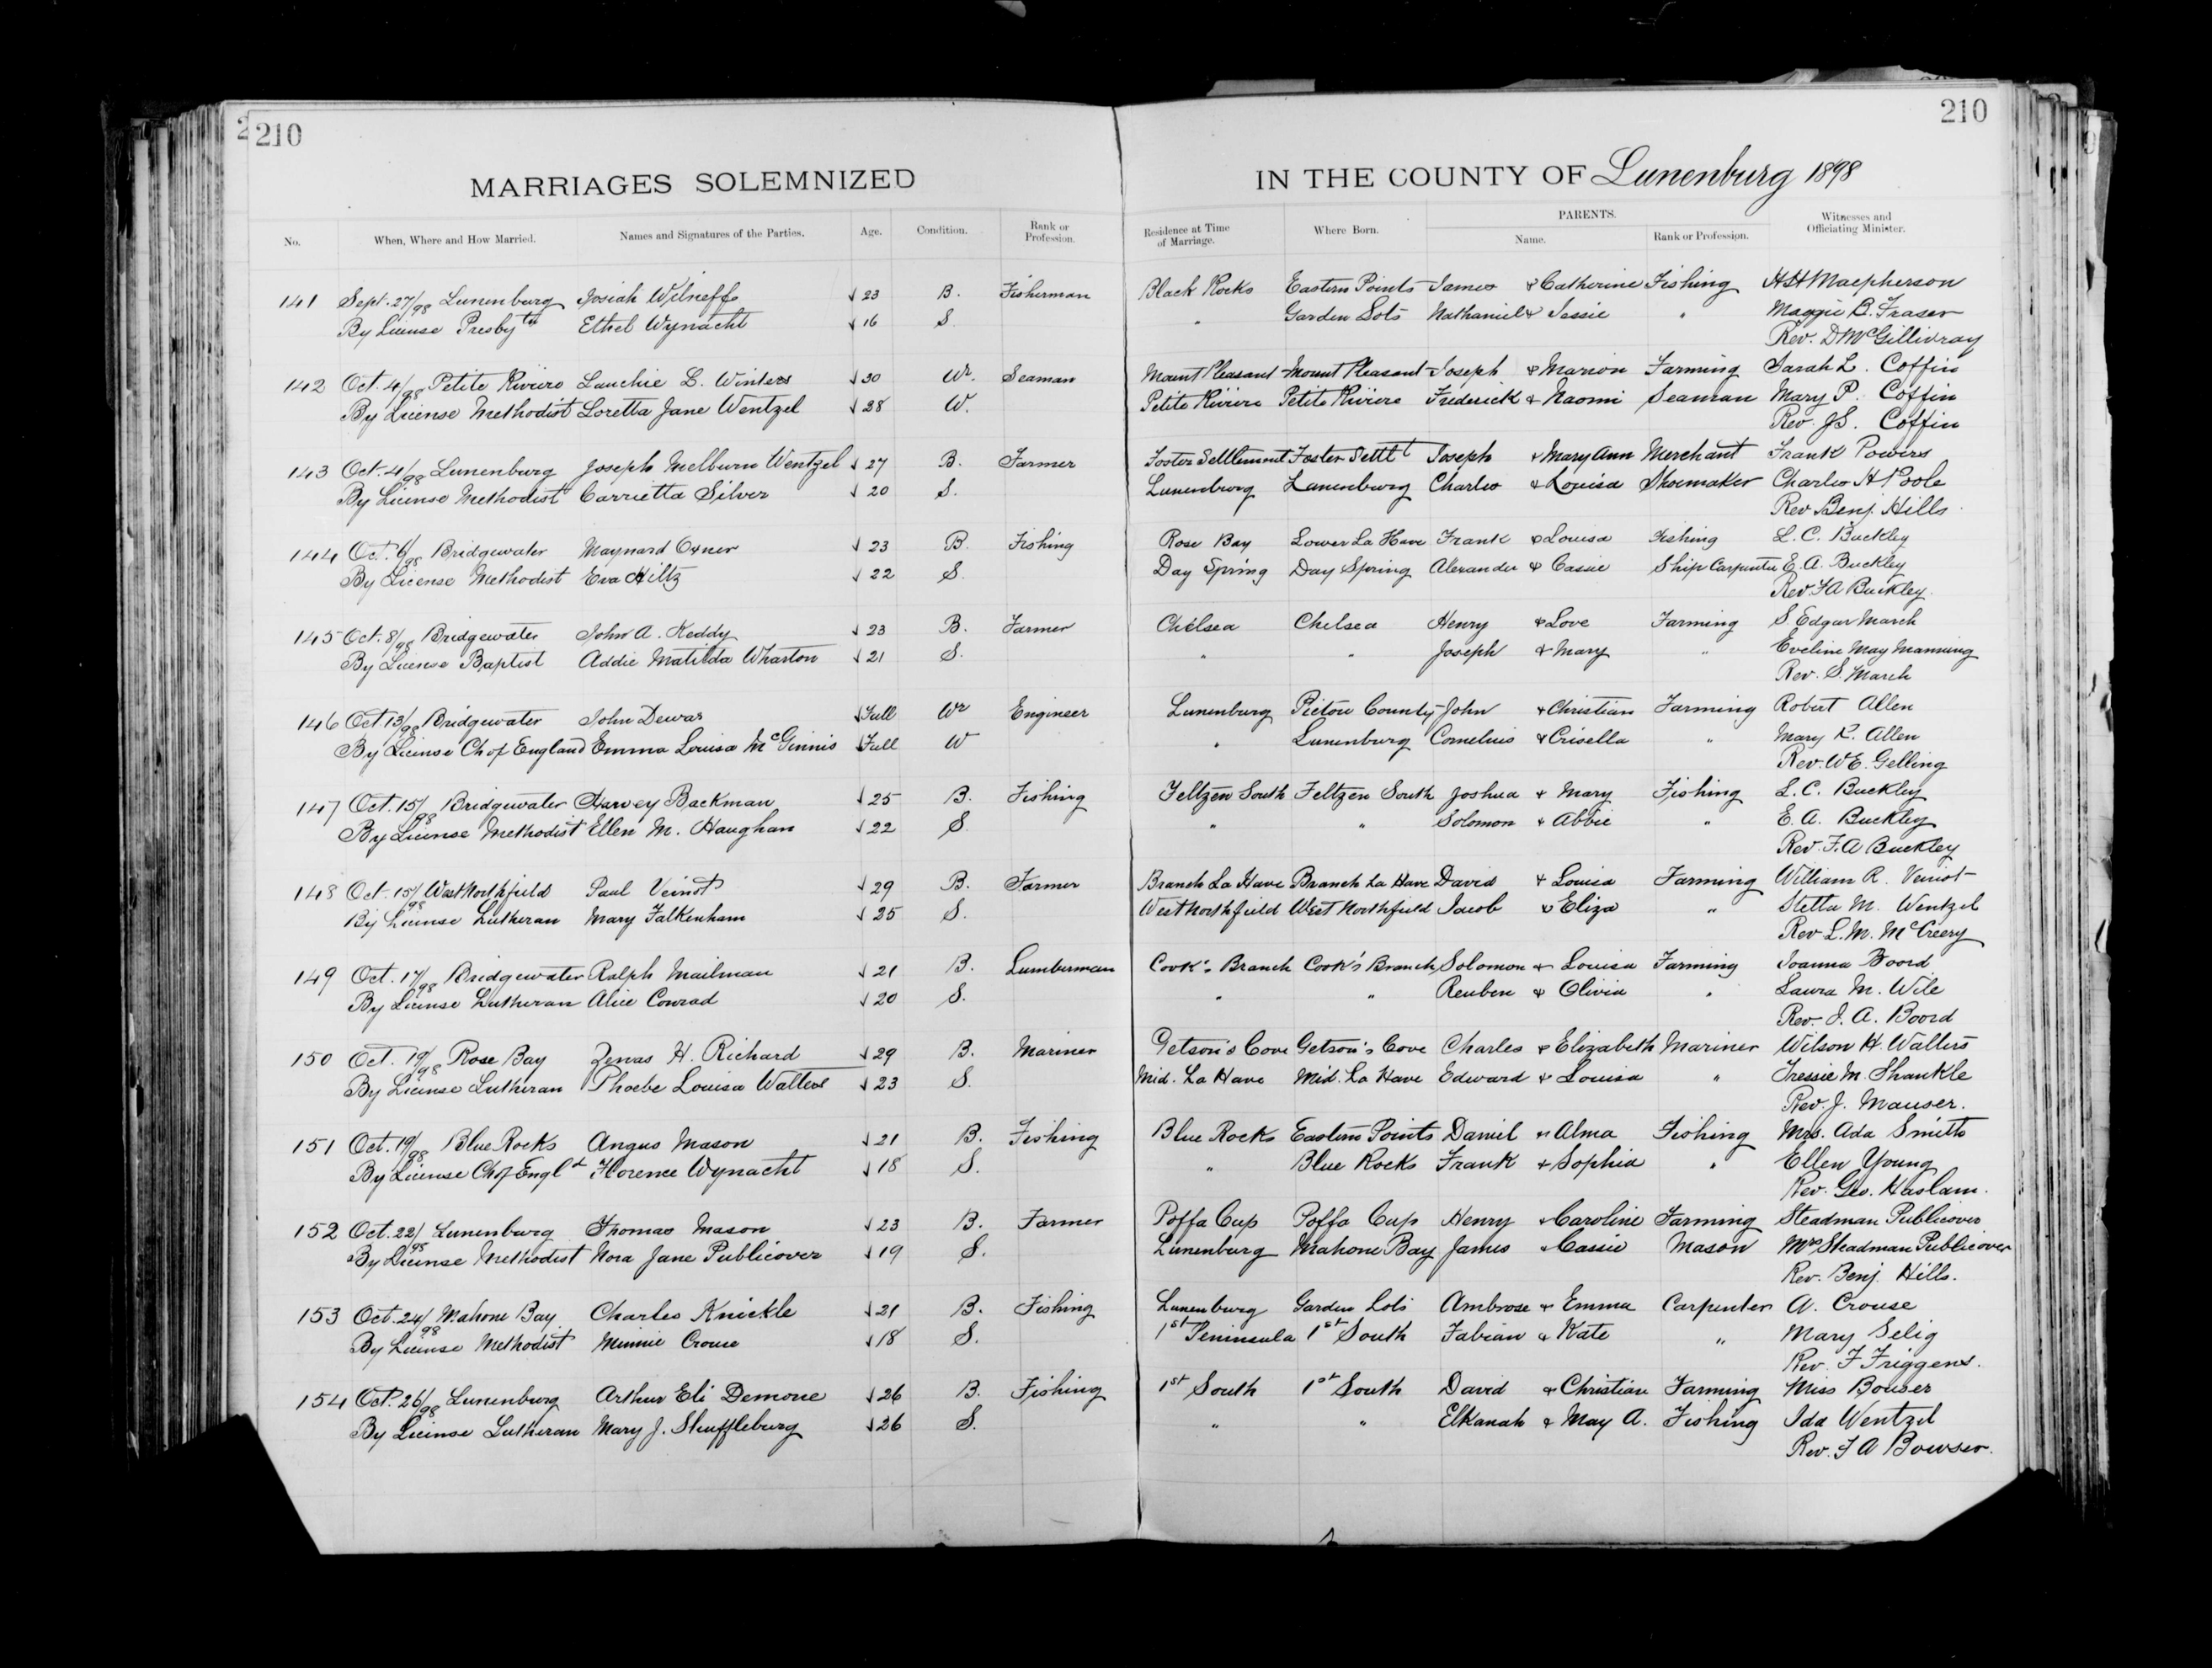 210
210
MARRIAGES SOLEMNIZED IN THE COUNTY OF Lunenburg 1898
No. When, Where and How Married. Names and Signatures of the Parties. Age. Condition. Rank or Profession. Residence at Time of Marriage. Where Born. PARENTS. Name. Rank or Profession. Witnesses and Officiating Minister.
141 Sept. 27/98 Lunenburg Josiah Wilneff 23 B. Fisherman Black Rocks Eastern Points James & Catherine Fishing H H Macpherson
By License Presbytn Ethel Wynacht 16 S. " Garden Lots Nathaniel & Jessie " Maggie B. Fraser
Rev. D McGillivray
142 Oct. 4/98 Petite Riviere Lauchie L. Winters 30 Wr. Seaman Mount Pleasant Mount Pleasant Joseph & Marion Farming Sarah L. Coffin
By License Methodist Loretta Jane Wentzel 28 W. Petite Riviere Petite Riviere Frederick & Naomi Seaman Mary P. Coffin
Rev. J S. Coffin
143 Oct. 4/98 Lunenburg Joseph Melburn Wentzel 27 B. Farmer Foster Settlement Foster Settlt Joseph & Mary Ann Merchant Frank Powers
By License Methodist Carrietta Silver 20 S. Lunenburg Lunenburg Charles & Louisa Shoemaker Charles H Poole
Rev Benj. Hills
144 Oct. 6/98 Bridgewater Maynard Oxner 23 B. Fishing Rose Bay Lower La Have Frank & Louisa Fishing L. C. Buckley
By License Methodist Eva Hiltz 22 S. Day Spring Day Spring Alexander & Cassie Ship Carpenter E. A. Buckley
Rev. F A Buckley.
145 Oct. 8/98 Bridgewater John A. Keddy 23 B. Farmer Chelsea Chelsea Henry & Love Farming S Edgar March
By License Baptist Addie Matilda Wharton 21 S. " " Joseph & Mary " Eveline May Manning
Rev. S. March
146 Oct. 13/98 Bridgewater John Dewar Full Wr Engineer Lunenburg Pictou County John & Christian Farming Robert Allen
By License Ch of England Emma Louisa McGinnis Full W " Lunenburg Cornelius & Crisella " Mary R. Allen
Rev. W E. Gelling
147 Oct. 15/98 Bridgewater Harvey Backman 25 B. Fishing Feltzen South Feltzen South Joshua & Mary Fishing L. C. Buckley
By License Methodist Ellen M. Haughan 22 S. " " Solomon & Abbie " E. A. Buckley
Rev. F. A Buckley
148 Oct. 15/98 West Northfield Paul Veinot 29 B. Farmer Branch La Have Branch La Have David & Louisa Farming William R. Veinot
By License Lutheran Mary Falkenham 25 S. West Northfield West Northfield Jacob & Eliza " Stetta M. Wentzel
Rev L. M. McCreery
149 Oct. 17/98 Bridgewater Ralph Mailman 21 B. Lumberman Cook's Branch Cook's Branch Solomon & Louisa Farming Joanna Boord
By License Lutheran Alice Conrad 20 S. " " Reuben & Olivia " Laura M. Wile
Rev. J. A. Boord
150 Oct. 19/98 Rose Bay Zenas H. Richard 29 B. Mariner Getson's Cove Getson's Cove Charles & Elizabeth Mariner Wilson H. Walters
By License Lutheran Phoebe Louisa Walters 23 S. Mid. La Have Mid. La Have Edward & Louisa " Tressie M. Shankle
Rev. J. Mauser.
151 Oct. 19/98 Blue Rocks Angus Mason 21 B. Fishing Blue Rocks Eastern Points Daniel & Alma Fishing Mrs. Ada Smith
By License Ch of Engld Florence Wynacht 18 S. " Blue Rocks Frank & Sophia " Ellen Young
Rev. Geo. Haslam.
152 Oct. 22/98 Lunenburg Thomas Mason 23 B. Farmer Poffa Cup Poffa Cup Henry & Caroline Farming Steadman Publicover
By License Methodist Nora Jane Publicover 19 S. Lunenburg Mahone Bay James & Cassie Mason Mrs Steadman Publicover
Rev. Benj. Hills.
153 Oct. 24/98 Mahone Bay Charles Knickle 21 B. Fishing Lunenburg Garden Lots Ambrose & Emma Carpenter A. Crouse
By License Methodist Minnie Crouse 18 S. 1st Peninsula 1st South Fabian & Kate " Mary Selig
Rev. F Friggens.
154 Oct. 26/98 Lunenburg Arthur Eli Demone 26 B. Fishing 1st South 1st South David & Christian Farming Miss Bowser
By License Lutheran Mary J. Stuffleburg 26 S. " " Elkanah & May A. Fishing Ida Wentzel
Rev. F A Bowser.